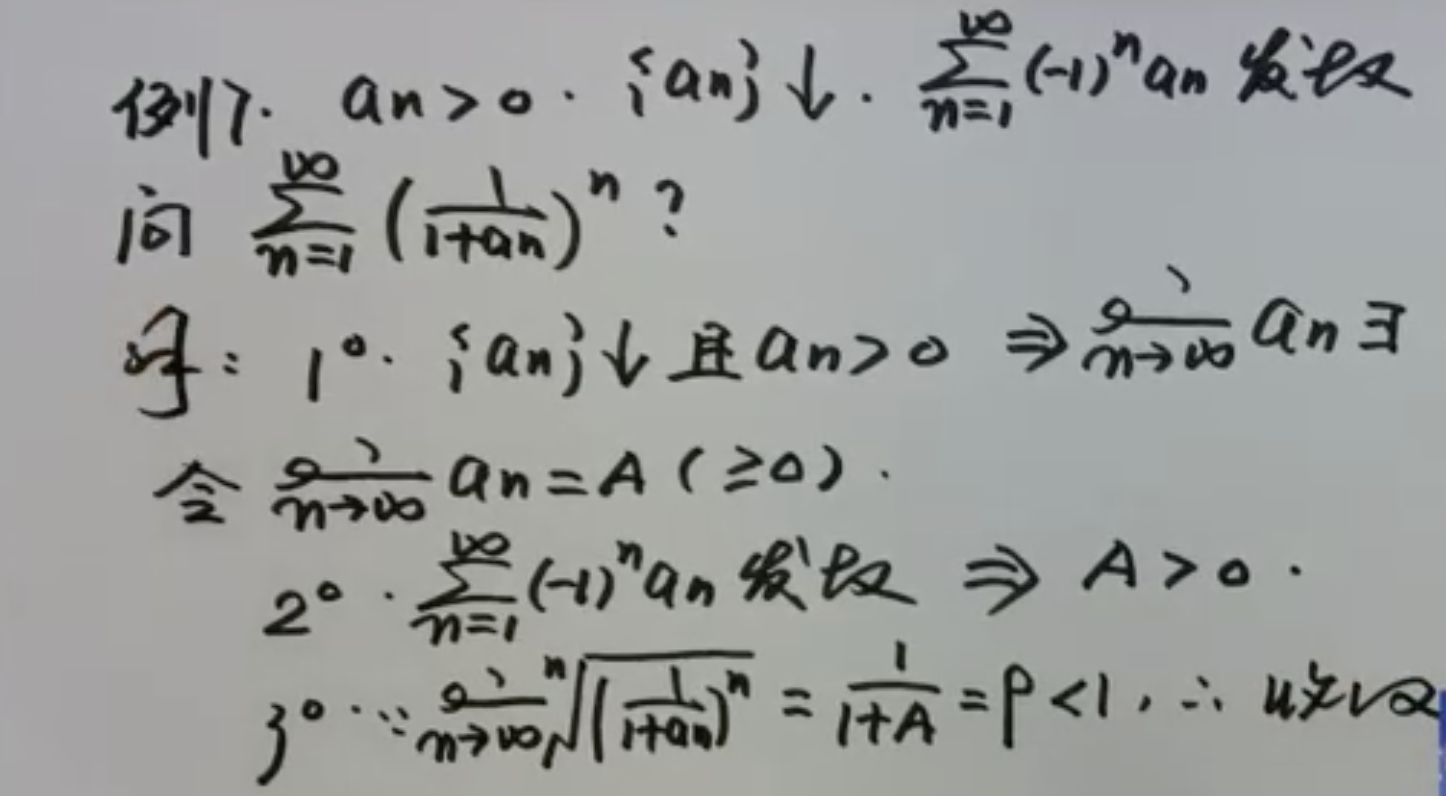 例7. aₙ>0. {aₙ}↓. ∑_{n=1}^{∞}(-1)ⁿaₙ 发散
问 ∑_{n=1}^{∞}(1/(1+aₙ))ⁿ ?
解: 1°. {aₙ}↓且aₙ>0 ⇒ lim_{n→∞} aₙ ∃
令 lim_{n→∞} aₙ=A (≥0).
2°. ∑_{n=1}^{∞}(-1)ⁿaₙ 发散 ⇒ A>0.
3°. ∵ lim_{n→∞} ⁿ√((1/(1+aₙ))ⁿ) = 1/(1+A) = ρ<1, ∴ 收敛